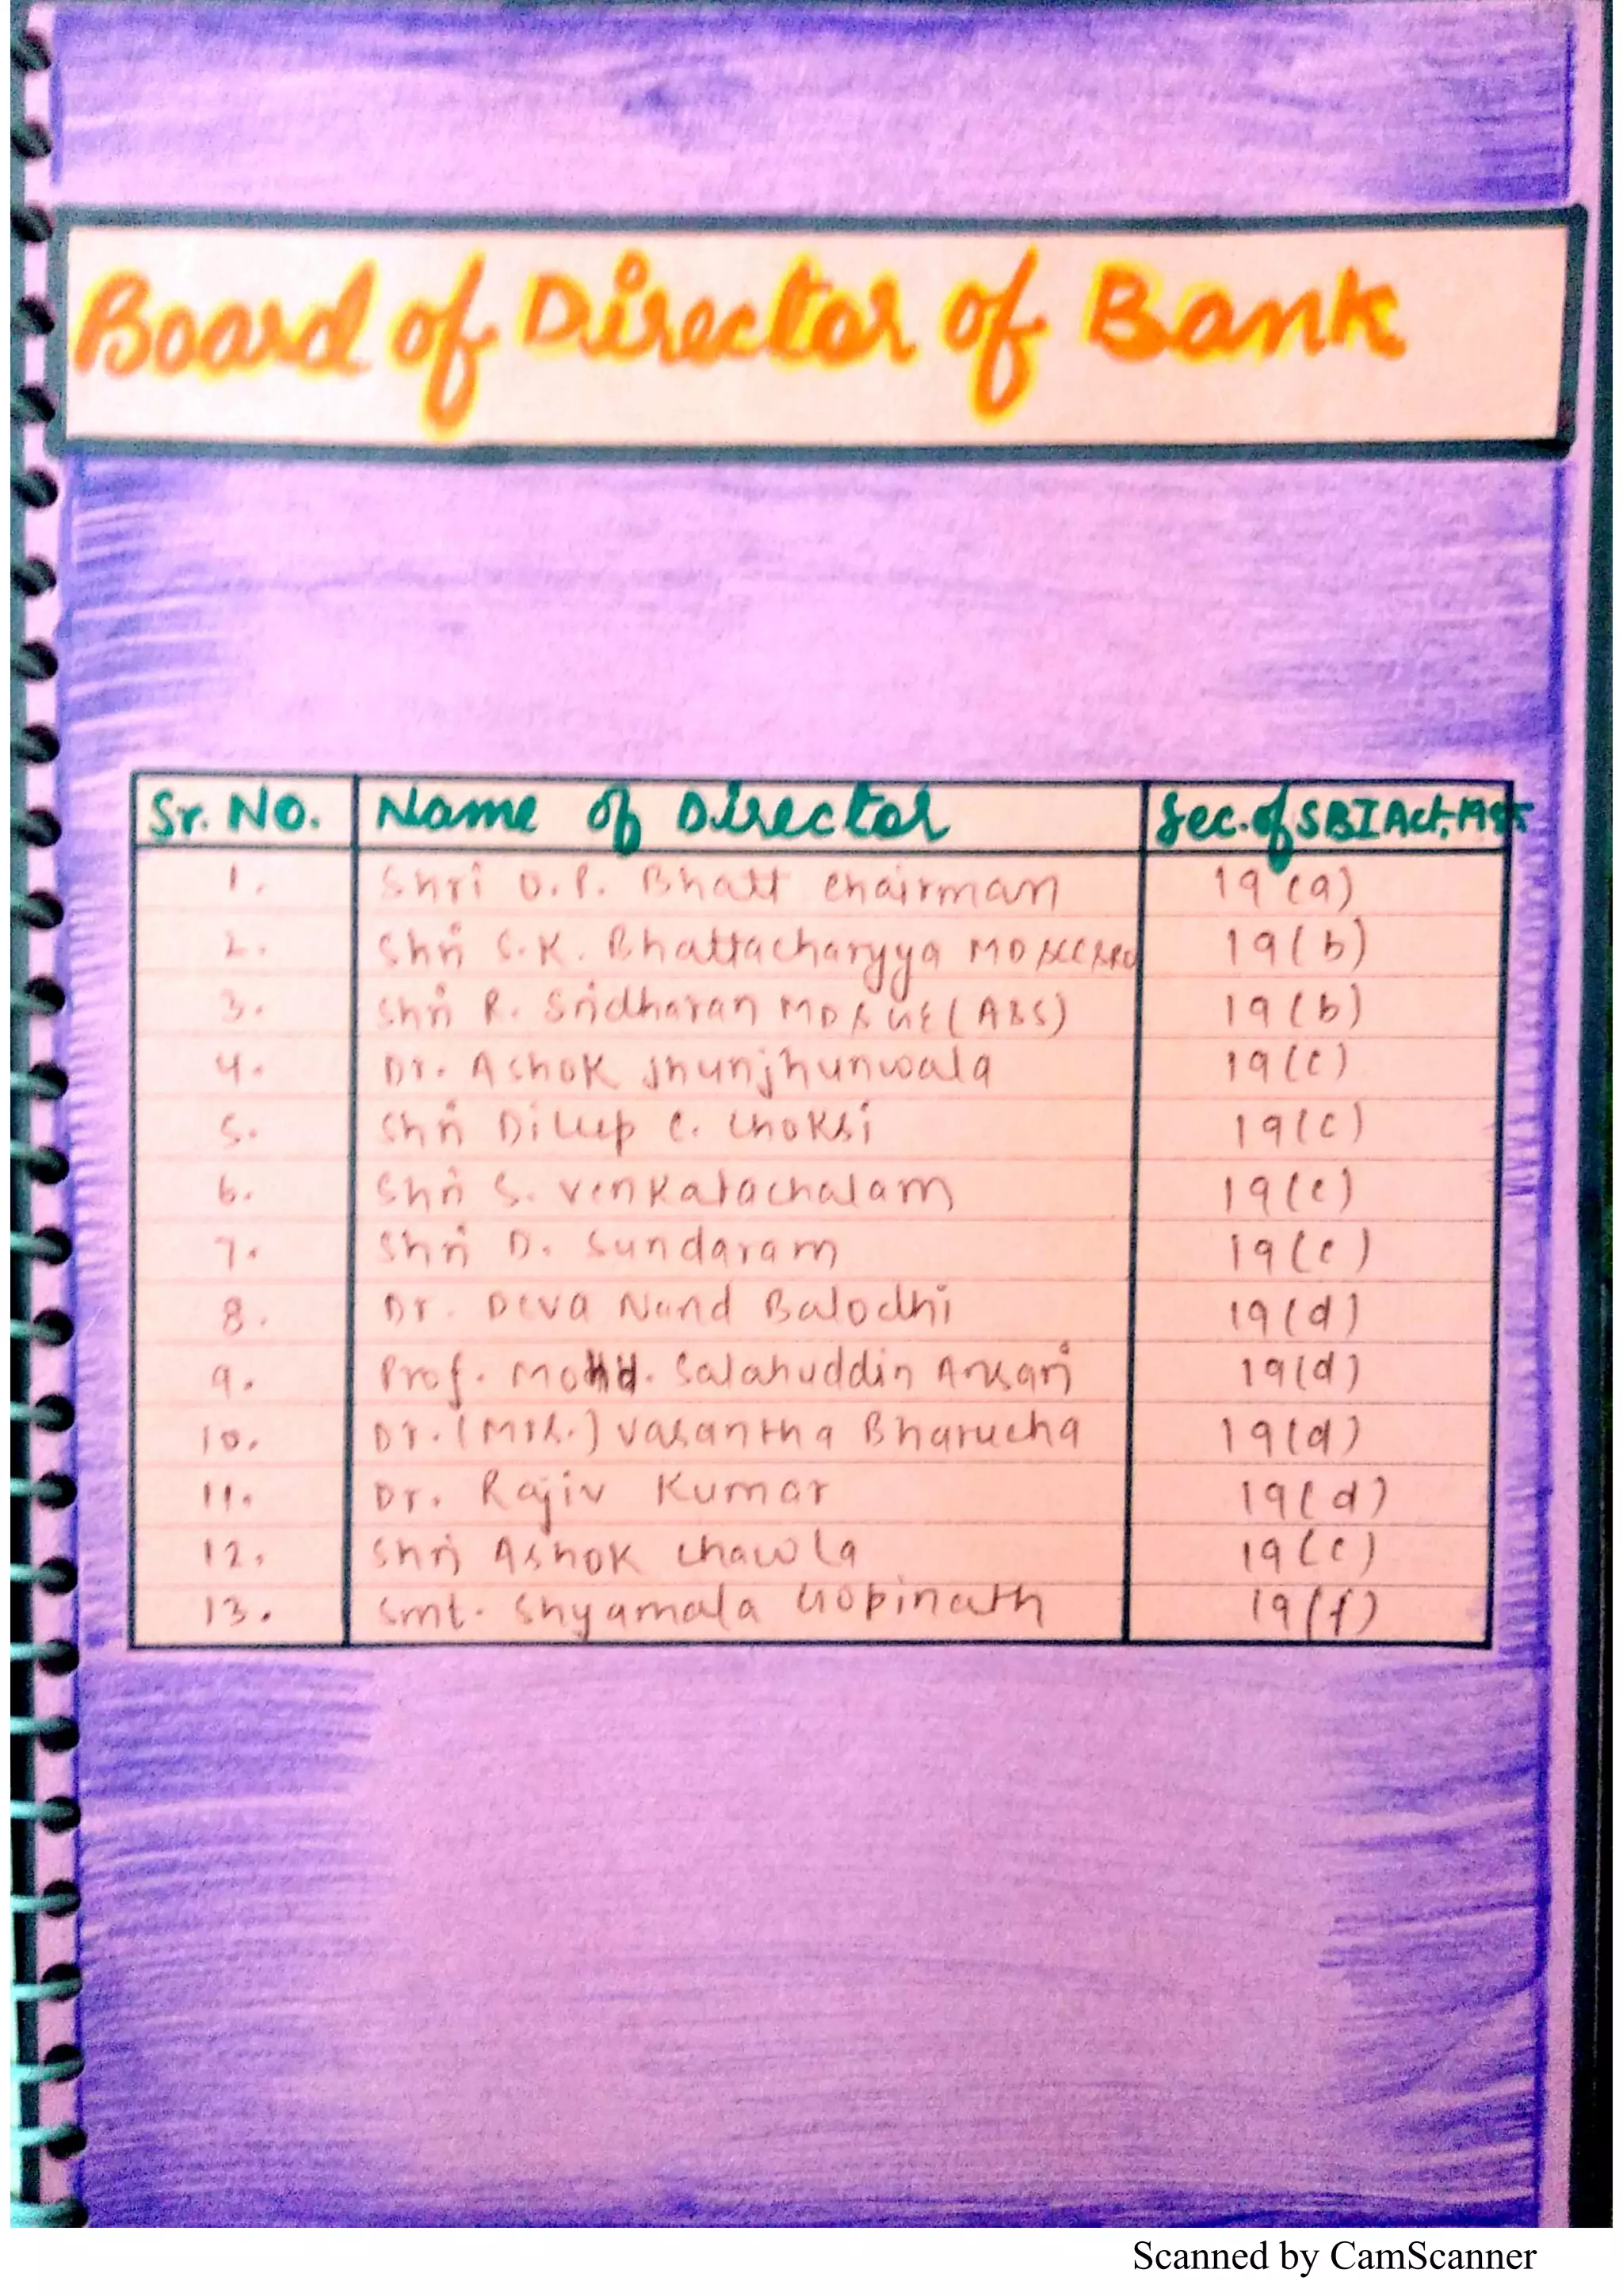 Board of Director of Bank
Sr. No. Name of Director Sec. of SBI Act,
1. Shri O.P. Bhatt Chairman 19 (a)
2. Shri S.K. Bhattacharyya MD & CC & RO 19(b)
3. Shri R. Sridharan MD & GE (A&S) 19(b)
4. Dr. Ashok Jhunjhunwala 19(c)
5. Shri Dileep C. Choksi 19(c)
6. Shri S. Venkatachalam 19(c)
7. Shri D. Sundaram 19(c)
8. Dr. Deva Nand Balodhi 19(d)
9. Prof. Mohd. Salahuddin Ansari 19(d)
10. Dr. (Mrs.) Vasantha Bharucha 19(d)
11. Dr. Rajiv Kumar 19(d)
12. Shri Ashok Chawla 19(e)
13. Smt. Shyamala Gopinath 19(f)
Scanned by CamScanner